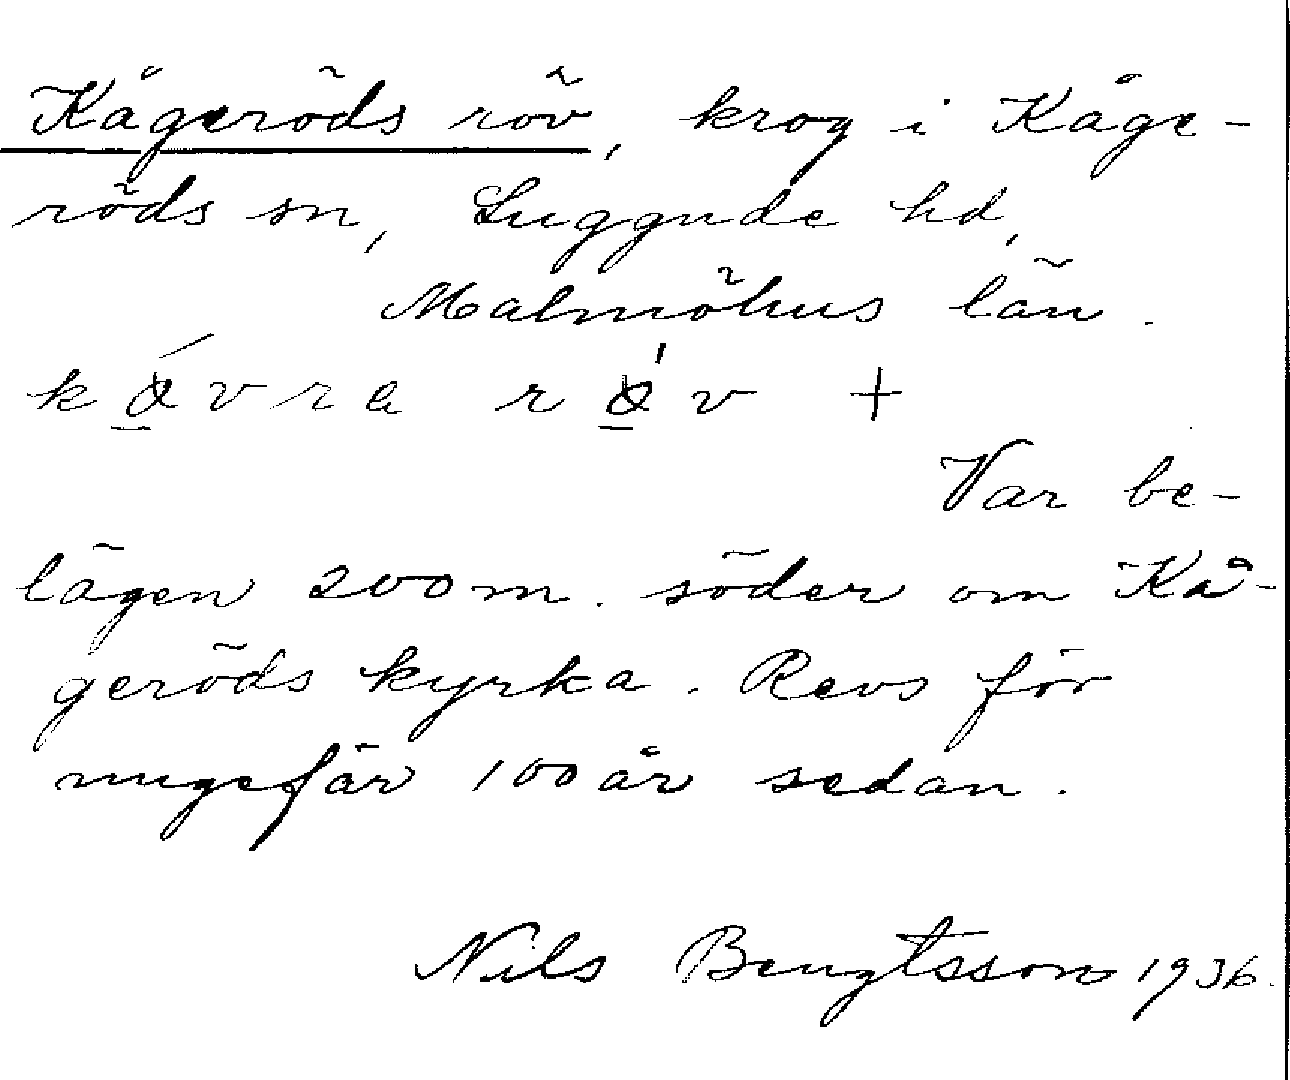 Kågeröds röv, krog i Kåge-
röds sn, Luggude hd,
Malmöhus län.
kǿvra rǿv +
Var be-
lägen 200 m. söder om Kå-
geröds kyrka. Revs för
ungefär 100 år sedan.
Nils Bengtsson 1936.